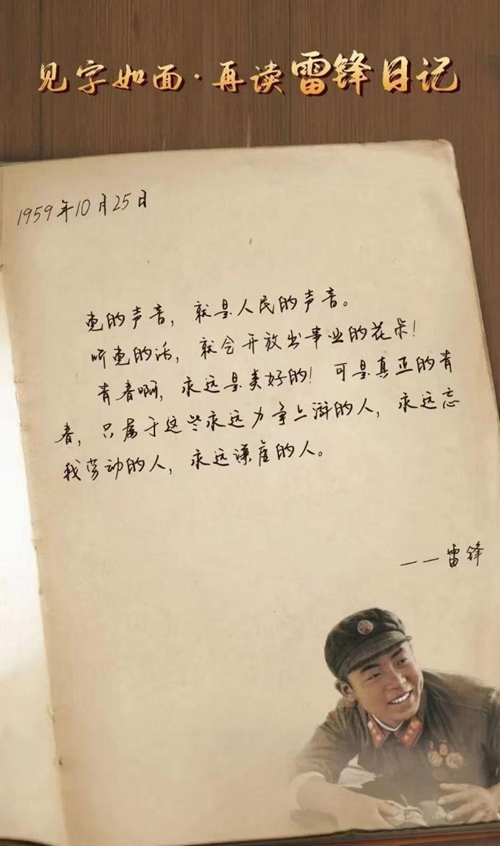 见字如面·再读雷锋日记
1959年10月25日
党的声音，就是人民的声音。
听党的话，就会开放出事业的花朵！
青春啊，永远是美好的！可是真正的青
春，只属于这些永远力争上游的人，永远忘
我劳动的人，永远谦虚的人。
——雷锋